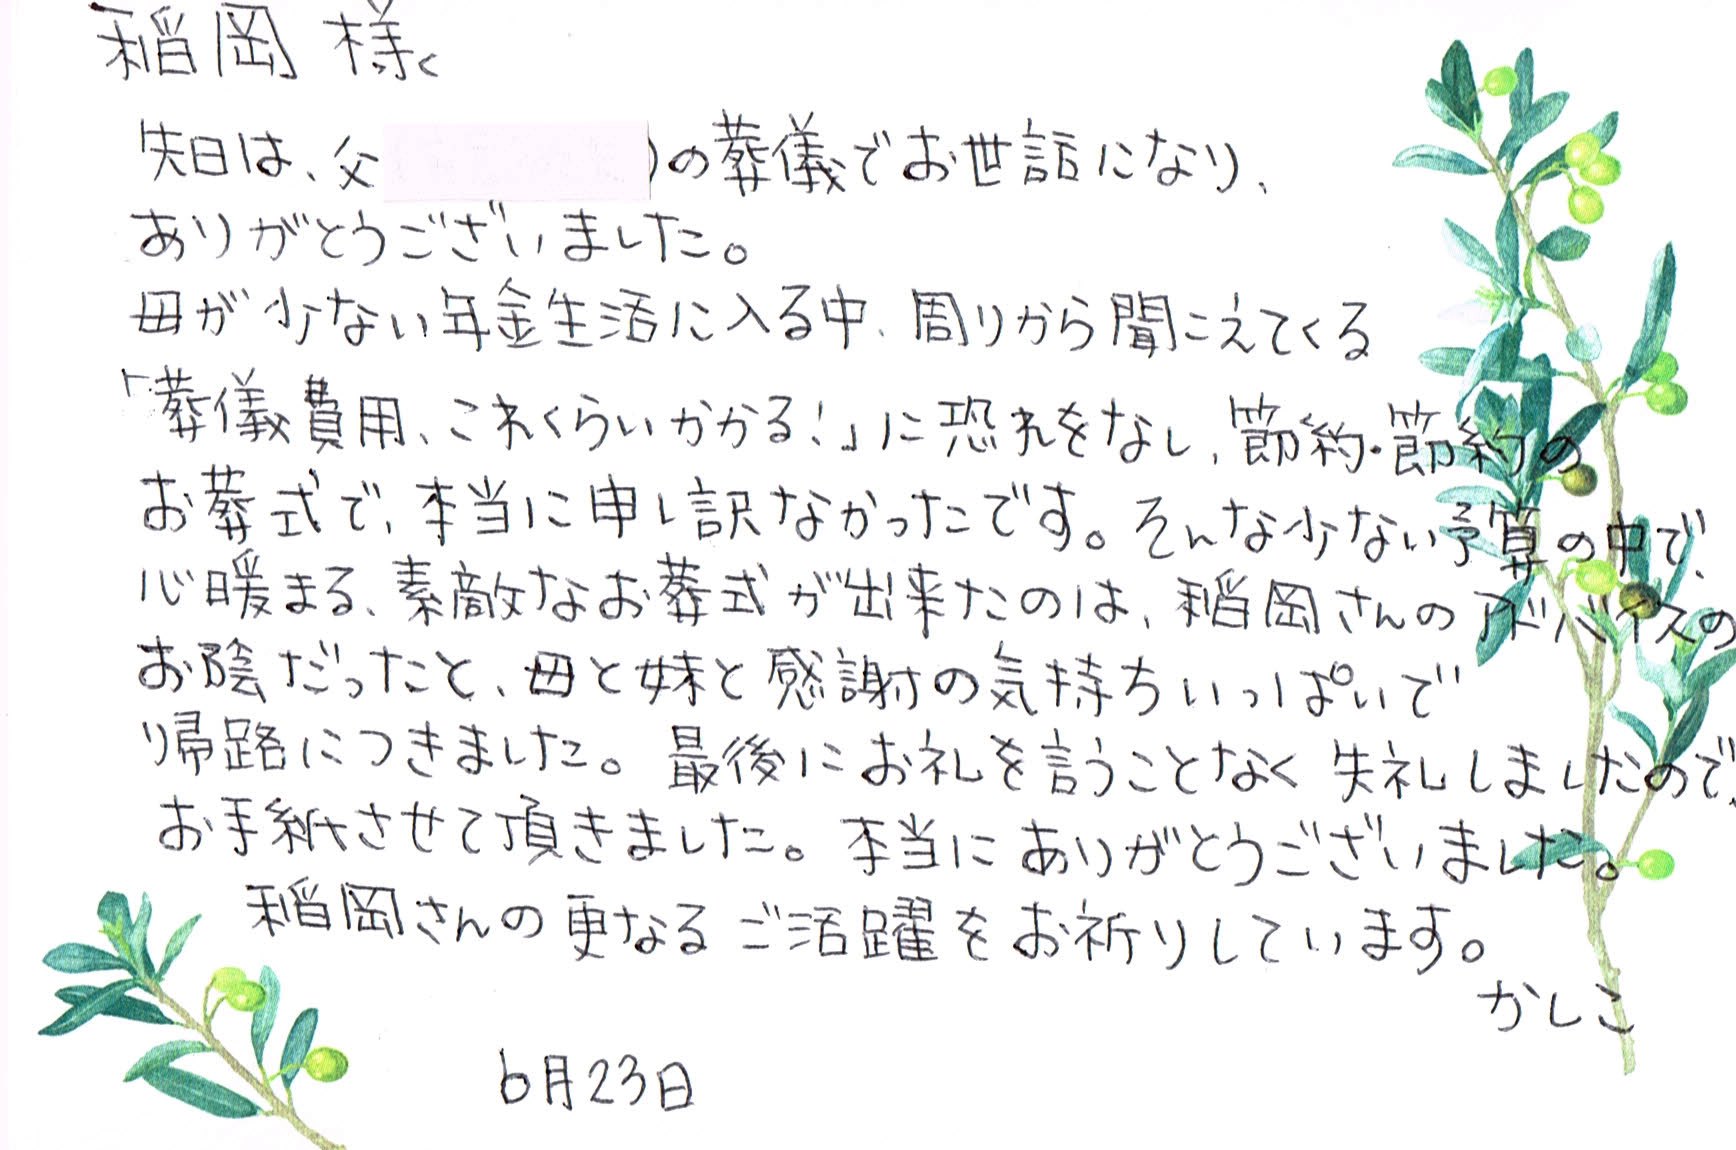 稲岡 様
先日は、父 )の葬儀でお世話になり、
ありがとうございました。
母が少ない年金生活に入る中、周りから聞こえてくる
「葬儀費用、これくらいかかる!」に恐れをなし、節約・節約の
お葬式で、本当に申し訳なかったです。そんな少ない予算の中で、
心暖まる、素敵なお葬式が出来たのは、稲岡さんのアドバイスの
お陰だったと、母と妹と感謝の気持ちいっぱいで
帰路につきました。最後にお礼を言うことなく失礼しましたので、
お手紙させて頂きました。本当にありがとうございました。
稲岡さんの更なるご活躍をお祈りしています。
かしこ
6月23日